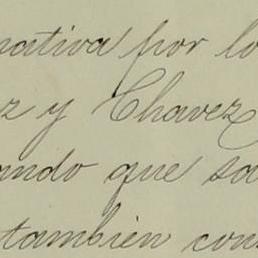 nativa por lo
z y Chavez
ando que sa
tambien con